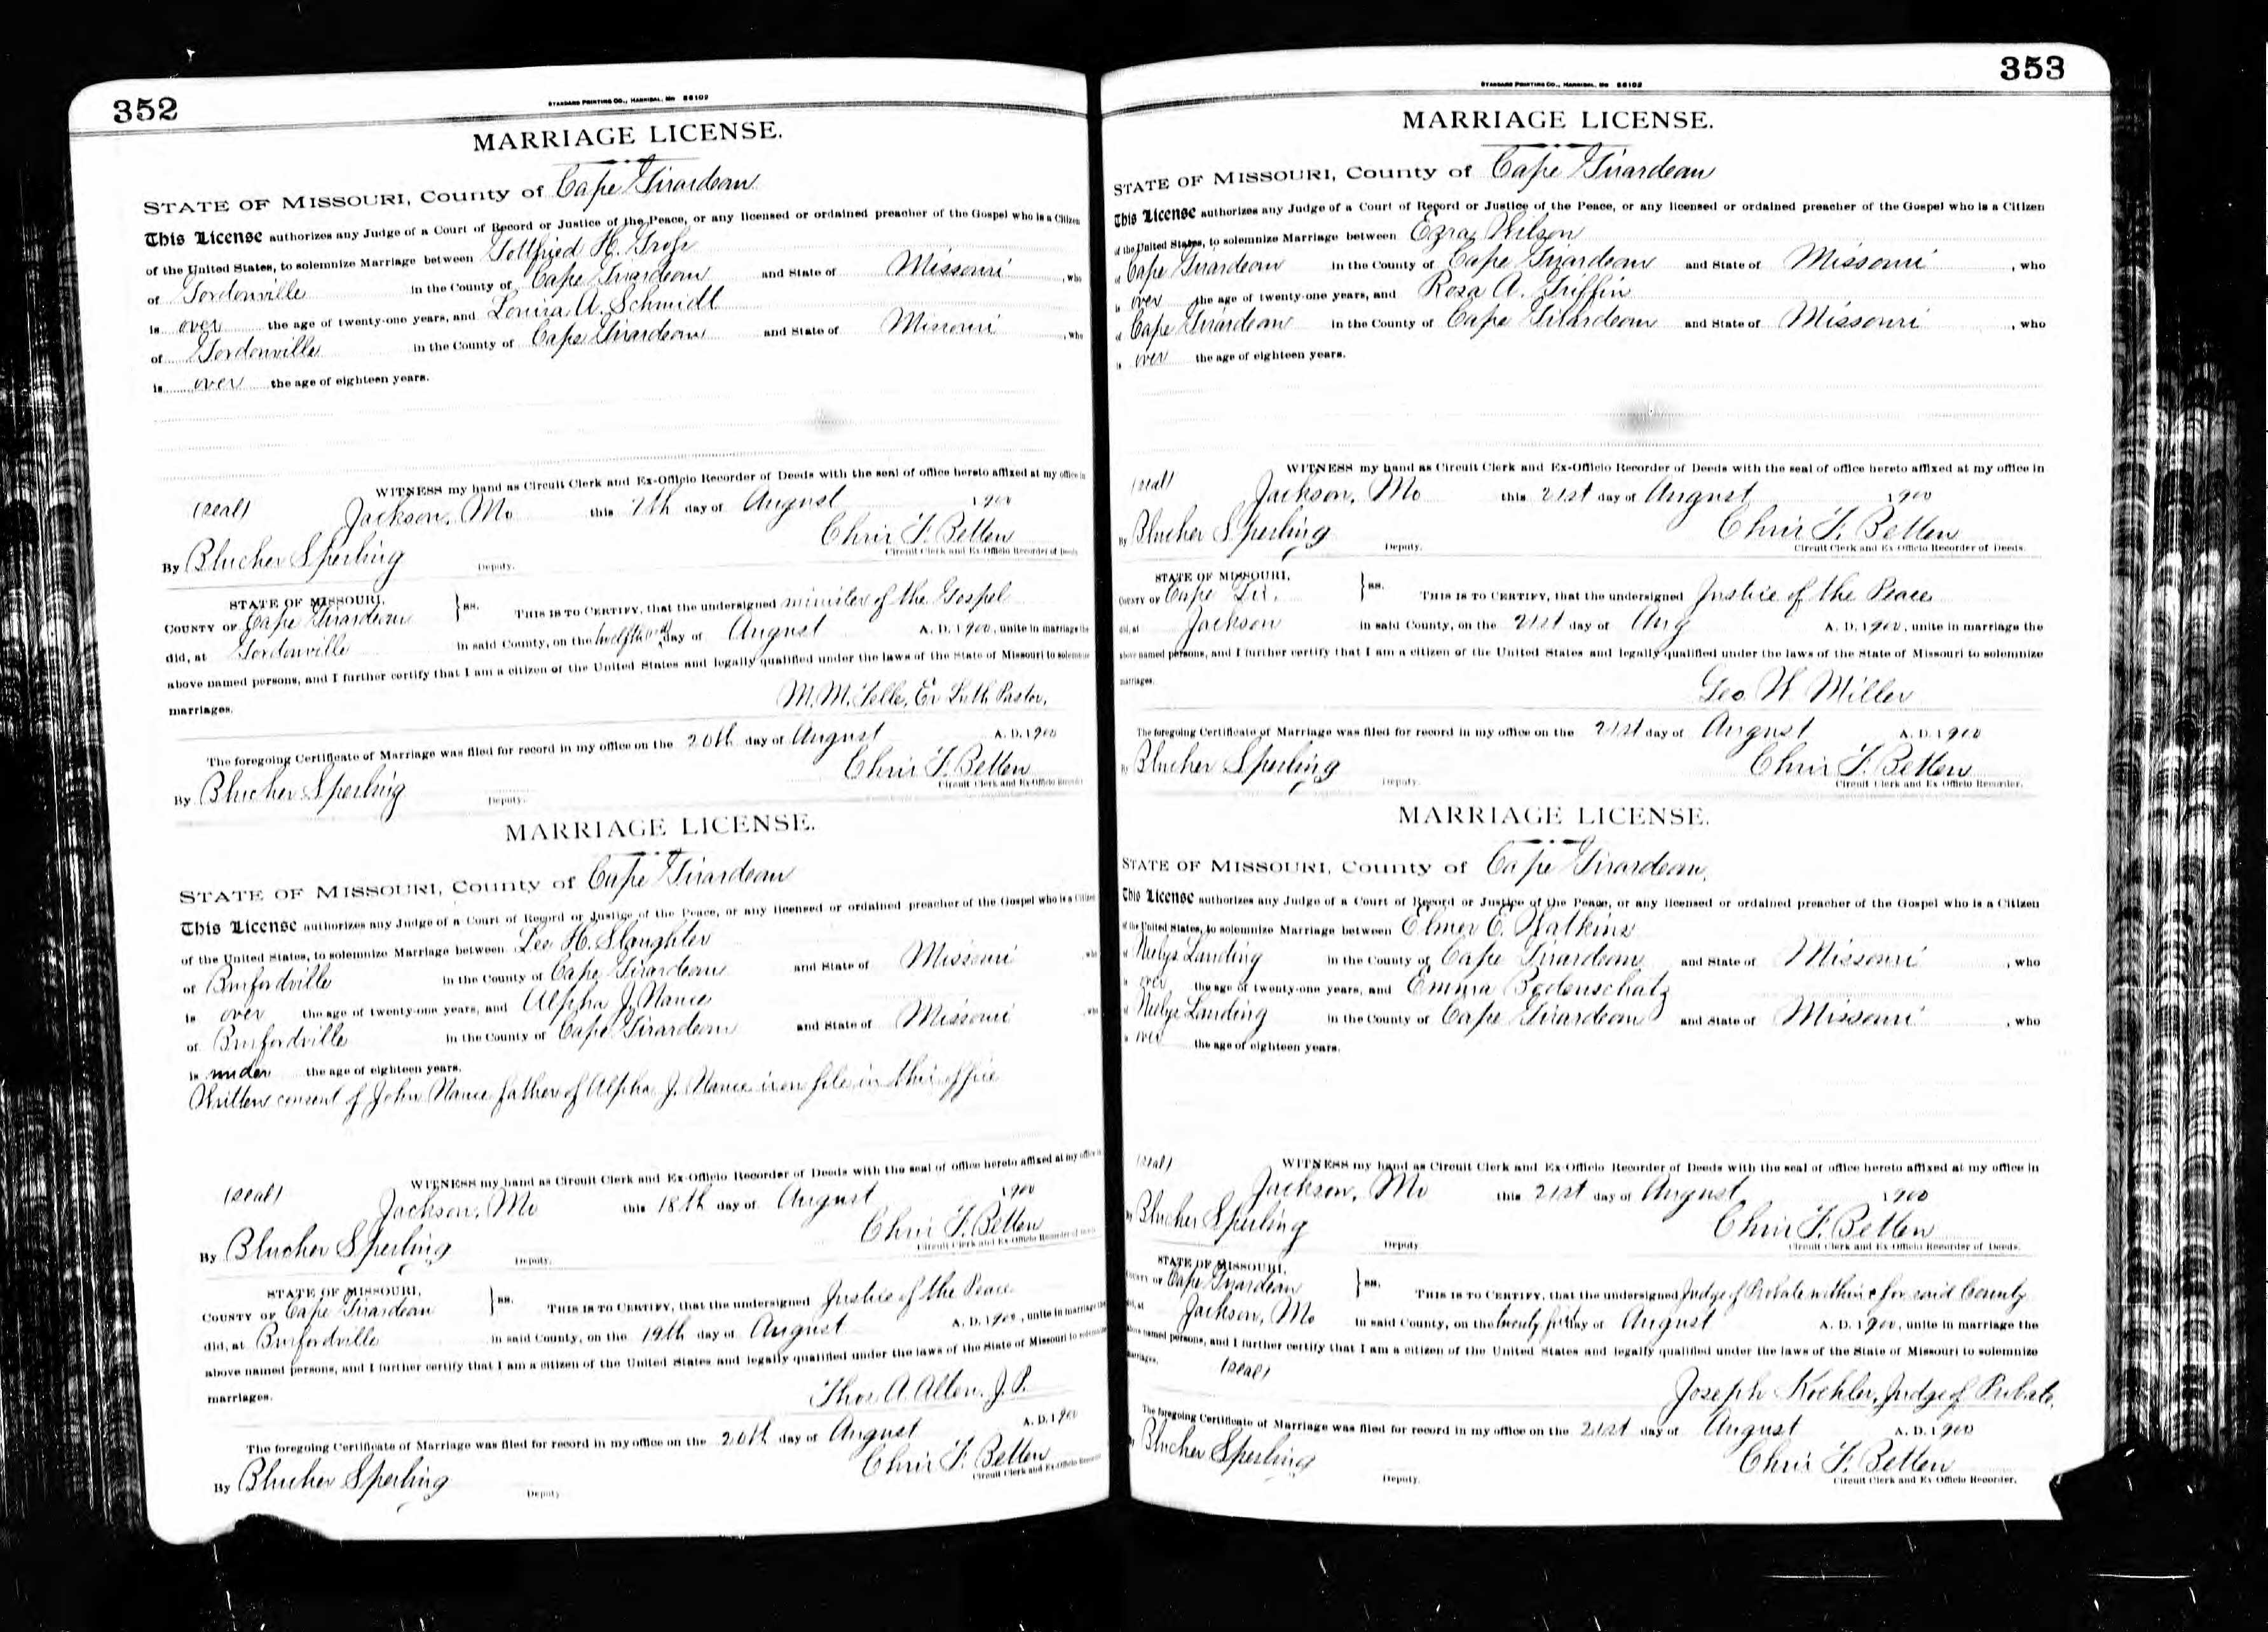 352
STANDARD PRINTING CO., HANNIBAL, MO 66102
MARRIAGE LICENSE.
STATE OF MISSOURI, County of Cape Girardeau
This License authorizes any Judge of a Court of Record or Justice of the Peace, or any licensed or ordained preacher of the Gospel who is a Citizen
of the United States, to solemnize Marriage between Gottfried H. Groß
of Gordonville in the County of Cape Girardeau and State of Missouri, who
is over the age of twenty-one years, and Louisa A. Schmidt
of Gordonville in the County of Cape Girardeau and State of Missouri, who
is over the age of eighteen years.
WITNESS my hand as Circuit Clerk and Ex-Officio Recorder of Deeds with the seal of office hereto affixed at my office in
(seal) Jackson, Mo this 7th day of August 1900
Chris F. Betten
Circuit Clerk and Ex-Officio Recorder of Deeds
By Blucher Sperling Deputy.
STATE OF MISSOURI,
COUNTY OF Cape Girardeau } ss. THIS IS TO CERTIFY, that the undersigned minister of the Gospel
did, at Gordonville in said County, on the twelfth day of August A. D. 1900, unite in marriage the
above named persons, and I further certify that I am a citizen of the United States and legally qualified under the laws of the State of Missouri to solemnize
marriages.
M. M. Ev Luth. Pastor.
The foregoing Certificate of Marriage was filed for record in my office on the 20th day of August A. D. 1900
Chris F. Betten
Circuit Clerk and Ex-Officio Recorder
By Blucher Sperling Deputy.
MARRIAGE LICENSE.
STATE OF MISSOURI, County of Cape Girardeau
This License authorizes any Judge of a Court of Record or Justice of the Peace, or any licensed or ordained preacher of the Gospel who is a Citizen
of the United States, to solemnize Marriage between Lee H. Slaughter
of Burfordville in the County of Cape Girardeau and State of Missouri who
is over the age of twenty-one years, and Alpha J. Nance
of Burfordville in the County of Cape Girardeau and State of Missouri who
is under the age of eighteen years.
Written consent of John Nance father of Alpha J. Nance is on file in this office
WITNESS my hand as Circuit Clerk and Ex-Officio Recorder of Deeds with the seal of office hereto affixed at my office in
(seal) Jackson, Mo this 18th day of August 1900
Chris F. Betten
Circuit Clerk and Ex-Officio Recorder of Deeds
By Blucher Sperling Deputy.
STATE OF MISSOURI,
COUNTY OF Cape Girardeau } ss. THIS IS TO CERTIFY, that the undersigned Justice of the Peace
did, at Burfordville in said County, on the 19th day of August A. D. 1900, unite in marriage the
above named persons, and I further certify that I am a citizen of the United States and legally qualified under the laws of the State of Missouri to solemnize
marriages.
Thos A. Allen. J. P.
The foregoing Certificate of Marriage was filed for record in my office on the 20th day of August A. D. 1900
Chris F. Betten
Circuit Clerk and Ex-Officio Recorder
By Blucher Sperling Deputy
353
STANDARD PRINTING CO., HANNIBAL, MO 66102
MARRIAGE LICENSE.
STATE OF MISSOURI, County of Cape Girardeau
This License authorizes any Judge of a Court of Record or Justice of the Peace, or any licensed or ordained preacher of the Gospel who is a Citizen
of the United States, to solemnize Marriage between Ezra Wilson
of Cape Girardeau in the County of Cape Girardeau and State of Missouri, who
is over the age of twenty-one years, and Rosa A. Griffin
of Cape Girardeau in the County of Cape Girardeau and State of Missouri, who
is over the age of eighteen years.
WITNESS my hand as Circuit Clerk and Ex-Officio Recorder of Deeds with the seal of office hereto affixed at my office in
(seal) Jackson, Mo this 21st day of August 1900
Chris F. Betten
Circuit Clerk and Ex Officio Recorder of Deeds.
By Blucher Sperling Deputy.
STATE OF MISSOURI,
COUNTY OF Cape Gir. } ss. THIS IS TO CERTIFY, that the undersigned Justice of the Peace
did, at Jackson in said County, on the 21st day of Aug A. D. 1900, unite in marriage the
above named persons, and I further certify that I am a citizen of the United States and legally qualified under the laws of the State of Missouri to solemnize
marriages.
Geo. W. Miller
The foregoing Certificate of Marriage was filed for record in my office on the 21st day of August A. D. 1900
Chris F. Betten
Circuit Clerk and Ex Officio Recorder.
By Blucher Sperling Deputy.
MARRIAGE LICENSE.
STATE OF MISSOURI, County of Cape Girardeau.
This License authorizes any Judge of a Court of Record or Justice of the Peace, or any licensed or ordained preacher of the Gospel who is a Citizen
of the United States, to solemnize Marriage between Elmer E. Watkins
of Neelys Landing in the County of Cape Girardeau and State of Missouri, who
is over the age of twenty-one years, and Emma Bodenschatz
of Neelys Landing in the County of Cape Girardeau and State of Missouri, who
is over the age of eighteen years.
WITNESS my hand as Circuit Clerk and Ex-Officio Recorder of Deeds with the seal of office hereto affixed at my office in
(seal) Jackson, Mo this 21st day of August 1900
Chris F. Betten
Circuit Clerk and Ex Officio Recorder of Deeds.
By Blucher Sperling Deputy
STATE OF MISSOURI,
COUNTY OF Cape Girardeau } ss. THIS IS TO CERTIFY, that the undersigned Judge of Probate within & for said County
did, at Jackson, Mo in said County, on the twenty first day of August A. D. 1900, unite in marriage the
above named persons, and I further certify that I am a citizen of the United States and legally qualified under the laws of the State of Missouri to solemnize
marriages. (seal)
Joseph Koehler, Judge of Probate.
The foregoing Certificate of Marriage was filed for record in my office on the 21st day of August A. D. 1900
Chris F. Betten
Circuit Clerk and Ex Officio Recorder.
By Blucher Sperling Deputy.